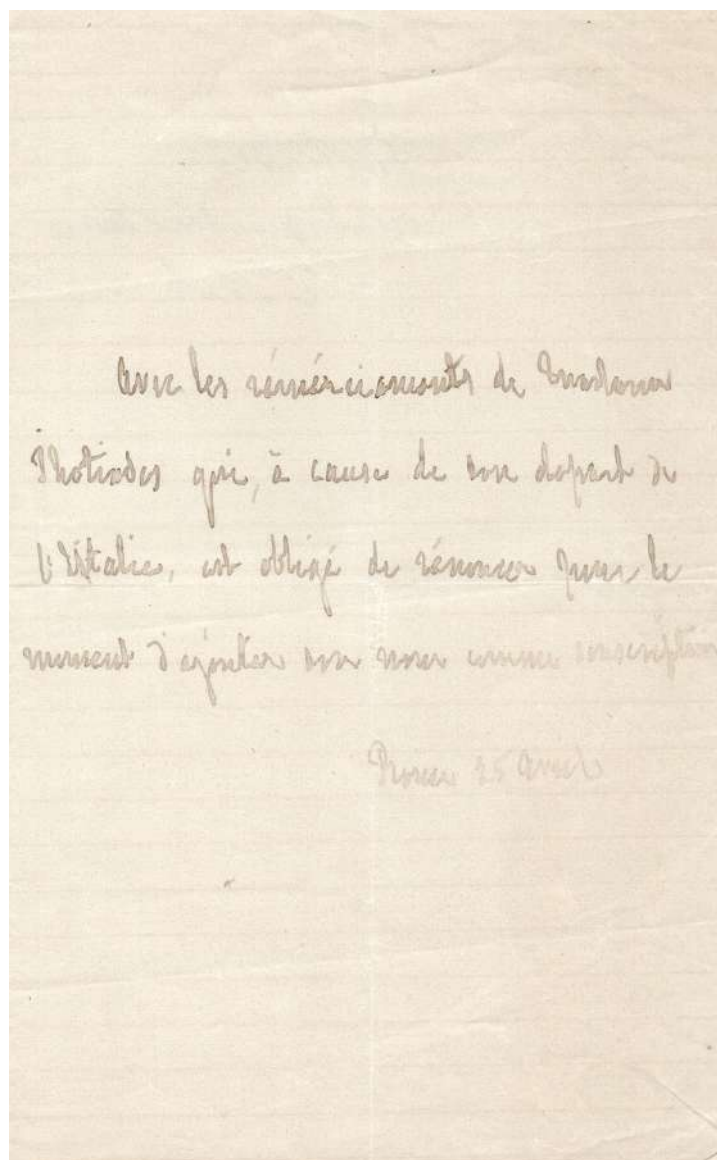 Avec les rémérciements de Madame
Photiades qui, à cause de son départ de
l'Italie, est obligé de rénoncer pour le
moment d'ajouter son nom comme souscription
Rome 25 Avril